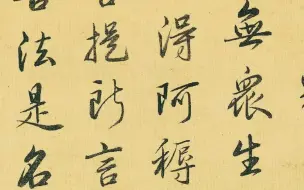 無眾生
得阿耨
提所言
法是名